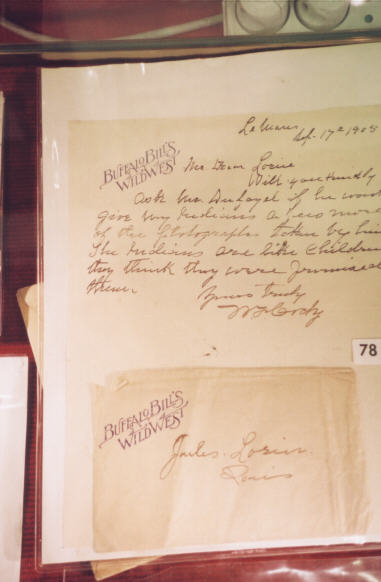 BUFFALO BILL'S
WILD WEST
Le Mans
Sep. 17th 1905
My Dear Lorin
Will you kindly
ask Mr. if he wont
give my Indians a few more
of the Photographs taken by him
The Indians are like Children
they think they were Promised
them.
Yours truly
W F Cody
78
BUFFALO BILL'S
WILD WEST
Jules. Lorin.
Paris